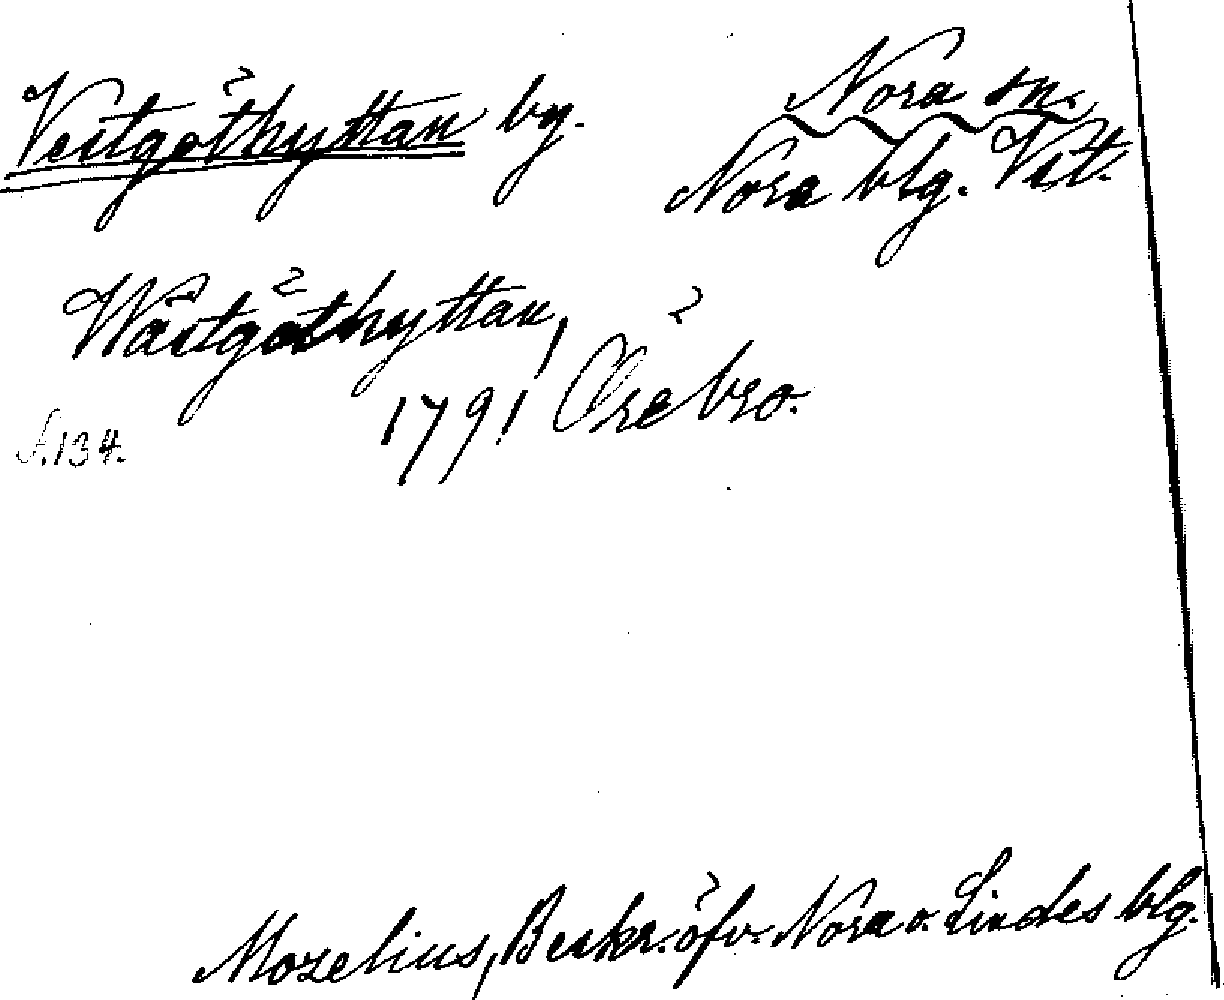 Vestgöthyttan by.
Nora sn.
Nora blg. Vstl.
Wästgöthyttan,
1791 Örebro.
S. 134.
Mozelius, Beskr. öfv. Nora o. Lindes blg.